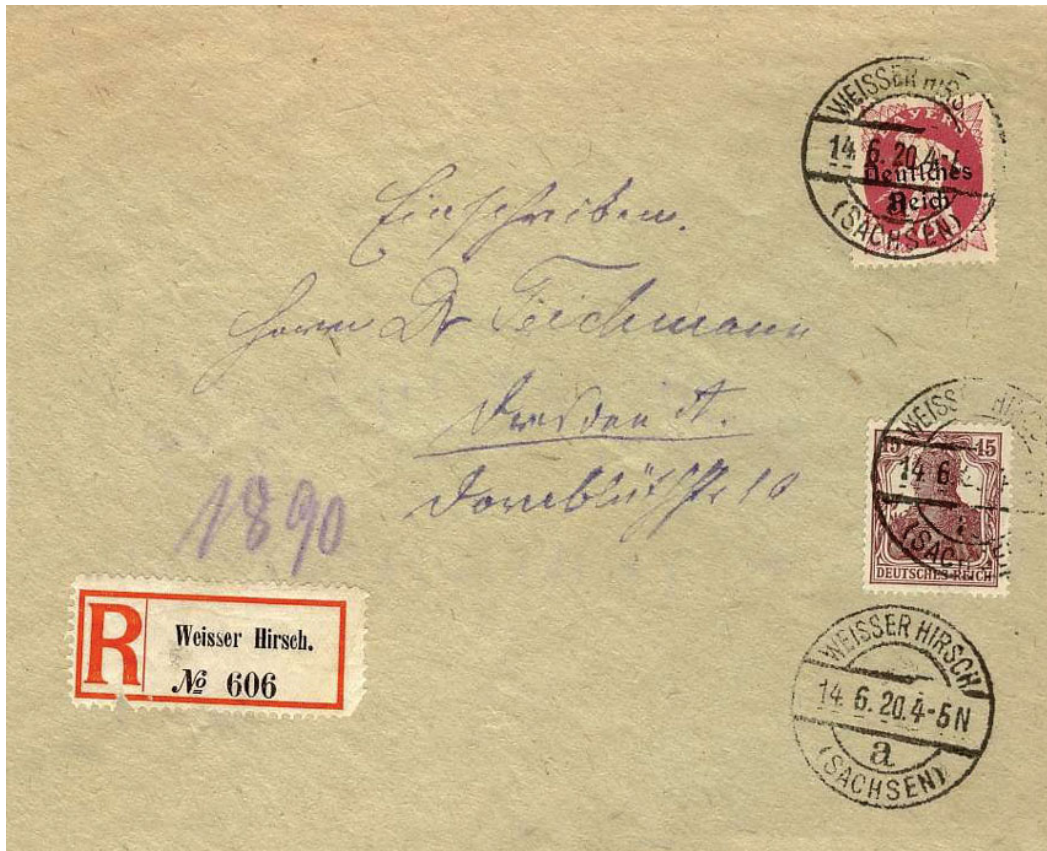 WEISSER HIRS
14.6.20.4-
(SACHSEN)
BAYERN
Deutsches
Reich
Einschreiben.
Herrn Dr Teichmann
Dresden A.
Dornblüthstr 10
1890
WEISS HIRSC
14 6
(SACHSEN
15 15
DEUTSCHES REICH
R
Weisser Hirsch.
№ 606
WEISSER HIRSCH
14.6.20.4-5N
a
(SACHSEN)